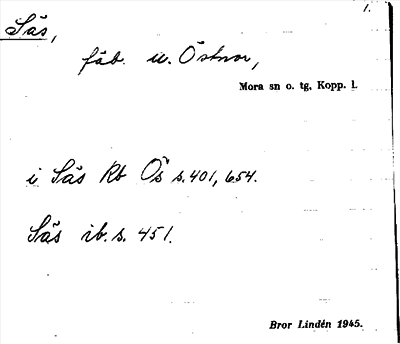 1.
Säs,
fäb. u. Östnor,
Mora sn o. tg, Kopp. l.
i Säs Rb Ös s. 401, 654.
Säs ib. s. 451.
Bror Lindén 1945.